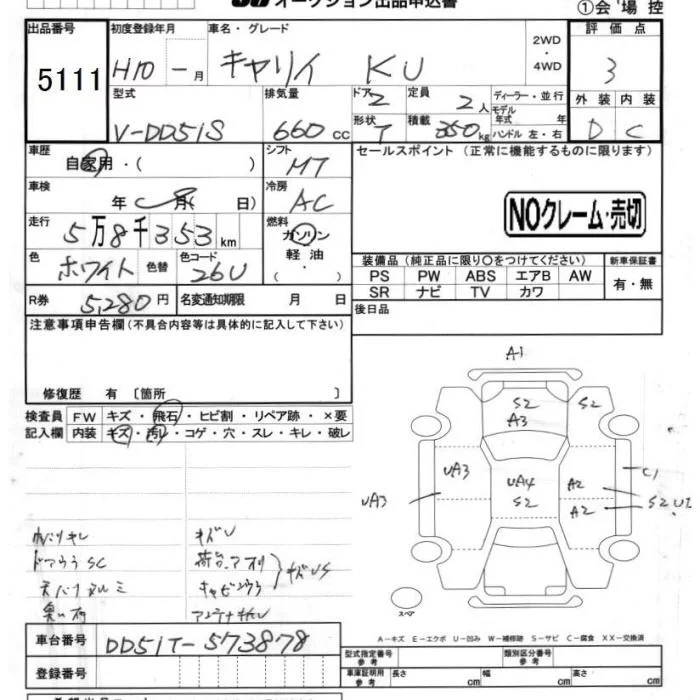 オークション出品申込書
①会場控
出品番号 初度登録年月 車名・グレード 2WD・4WD 評価点
5111 H10 - 月 キャリイ KU 3
型式 排気量 ドア 2 定員 2人 ディーラー・並行 外装 内装
V-DD51S 660cc 形状 T 積載 350kg モデル年式 年 ハンドル 左・右 D C
車歴 自家用・( ) シフト MT セールスポイント (正常に機能するものに限ります)
車検 年 月( 日) 冷房 AC
NOクレーム・売切
走行 5万8千353km 燃料 ガソリン 軽油・( )
色 ホワイト 色替 色コード 26U
装備品 (純正品に限り○をつけてください) 新車保証書
PS PW ABS エアB AW 有・無
SR ナビ TV カワ
R券 5,280円 名変通知期限 月 日
後日品
注意事項申告欄 (不具合内容等は具体的に記入して下さい)
修復歴 有 〔箇所 〕
検査員 FW キズ・飛石・ヒビ割・リペア跡・×要
記入欄 内装 キズ・汚れ・コゲ・穴・スレ・キレ・破レ
A1
S2 S2
A3
UA3 UA4 A2 C1
UA3 S2 A2 S2
キズU
ドアウラSC 荷台、アオリ
キャビンウラ キズUS
スペア
A-キズ E-エクボ U-凹み W-補修跡 S-サビ C-腐食 XX-交換済
車台番号 DD51T-573878
登録番号
型式指定番号 参考 類別区分番号 参考
車庫証明用 参考 長さ cm 幅 cm 高さ cm